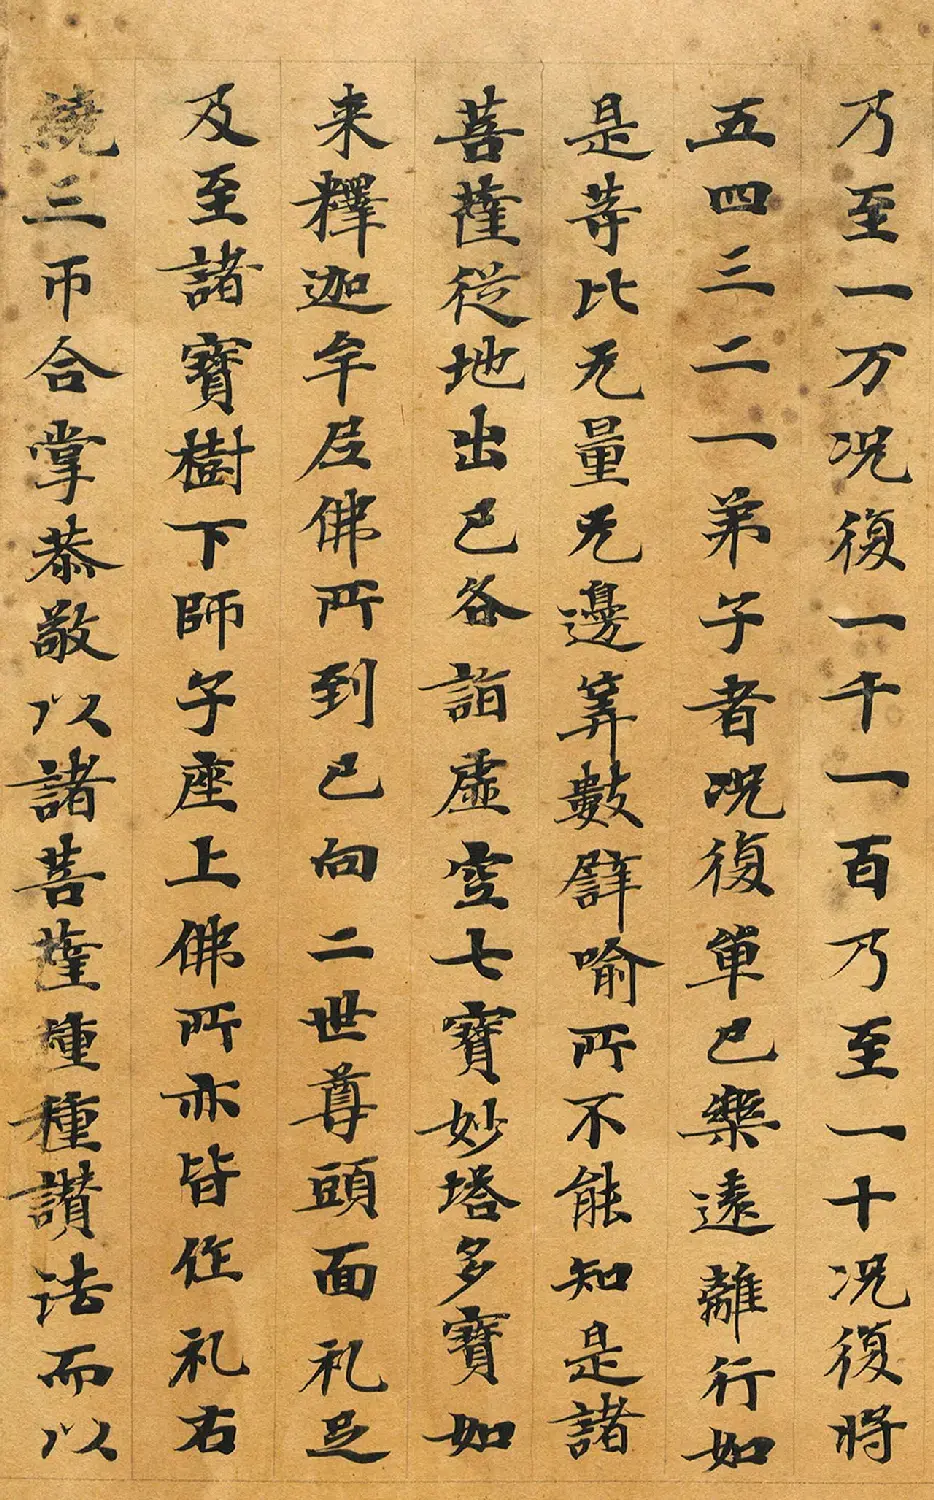 乃至一万况復一千一百乃至一十况復將
五四三二一弟子者况復單己樂遠離行如
是等比无量无邊筭數譬喻所不能知是諸
菩薩從地出已各詣虛空七寶妙塔多寶如
来釋迦牟尼佛所到已向二世尊頭面礼足
及至諸寶樹下師子座上佛所亦皆作礼右
繞三帀合掌恭敬以諸菩薩種種讃法而以